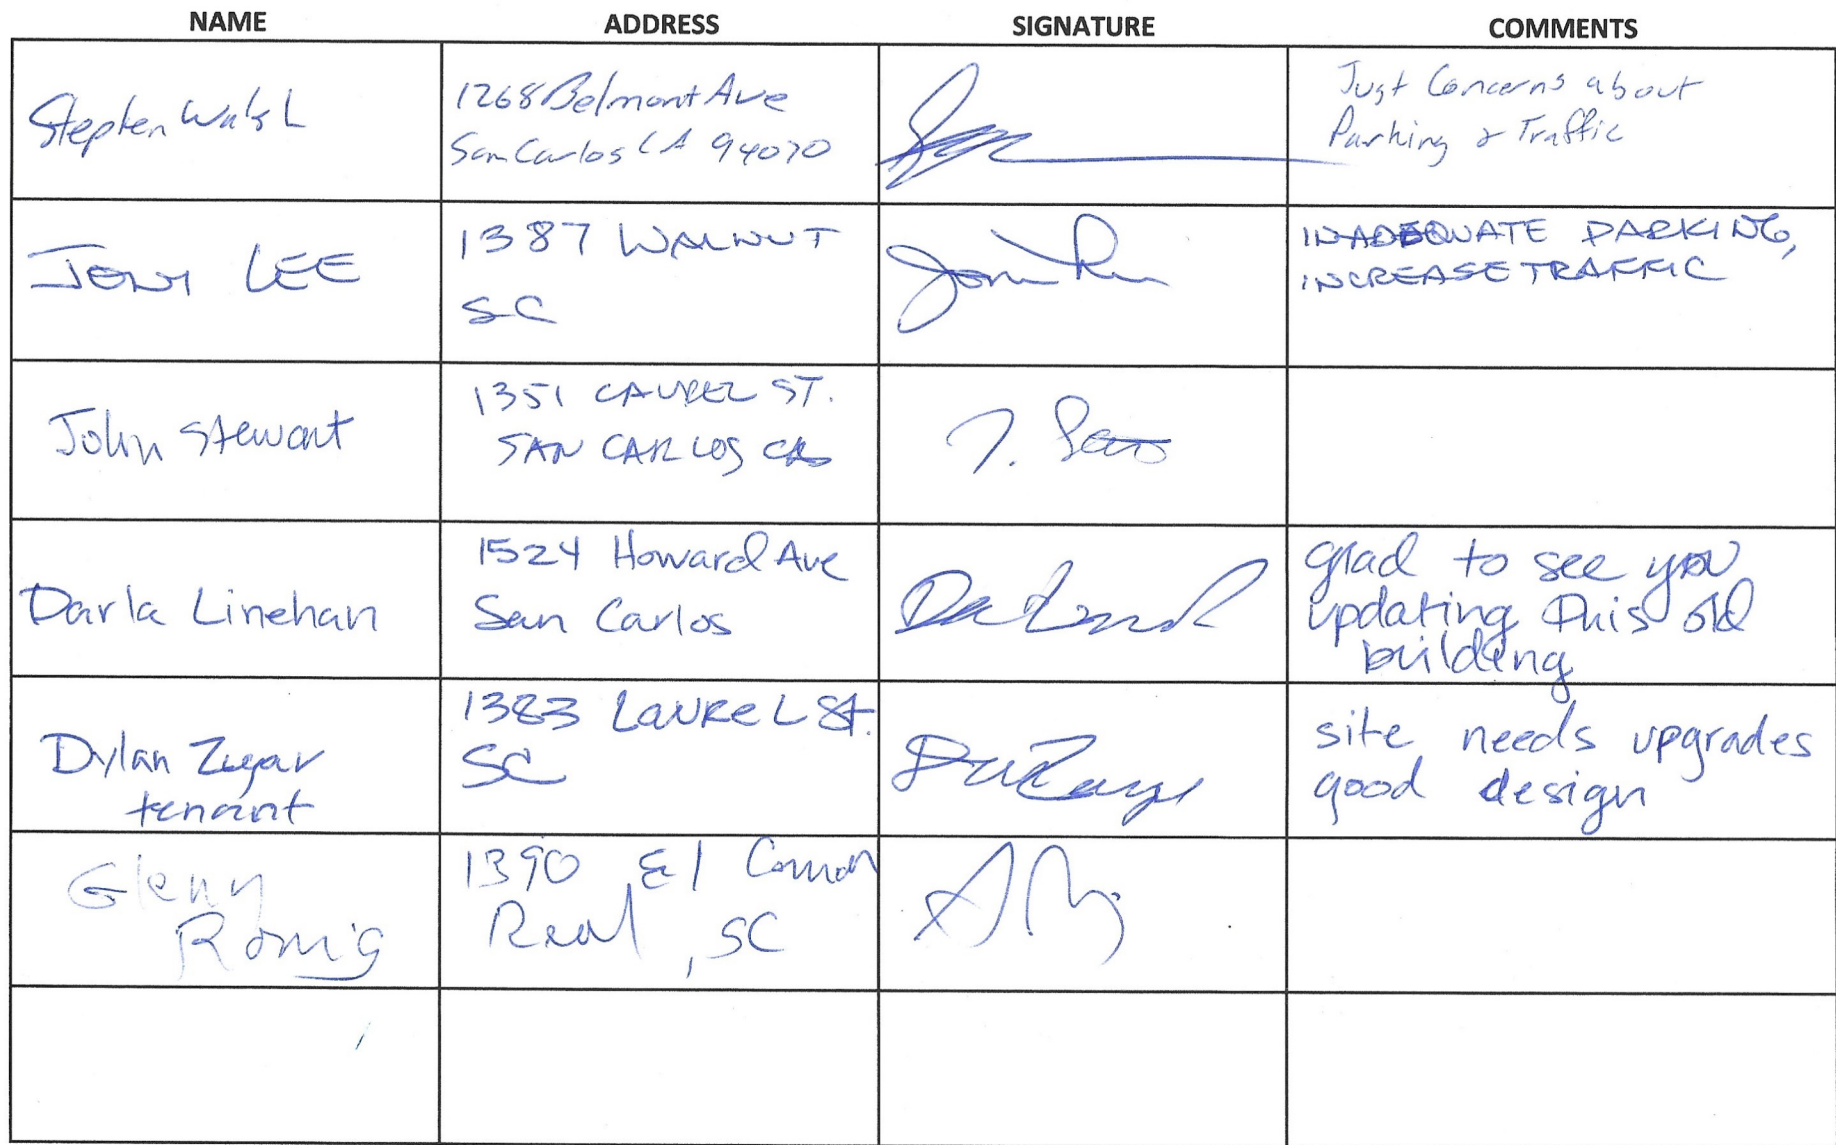 NAME ADDRESS SIGNATURE COMMENTS
Stephen Walsh
1268 Belmont Ave
San Carlos CA 94070
Just Concerns about
Parking & Traffic
JONI LEE
1387 WALNUT
SC
INADEQUATE PARKING,
INCREASE TRAFFIC
John Stewart
1351 LAUREL ST.
SAN CARLOS CA
Darla Linehan
1524 Howard Ave
San Carlos
glad to see you
updating this old
building
Dylan Zugar
tenant
1383 LAUREL St.
SC
site needs upgrades
good design
Glenn
Romig
1390 El Camon
Real, SC